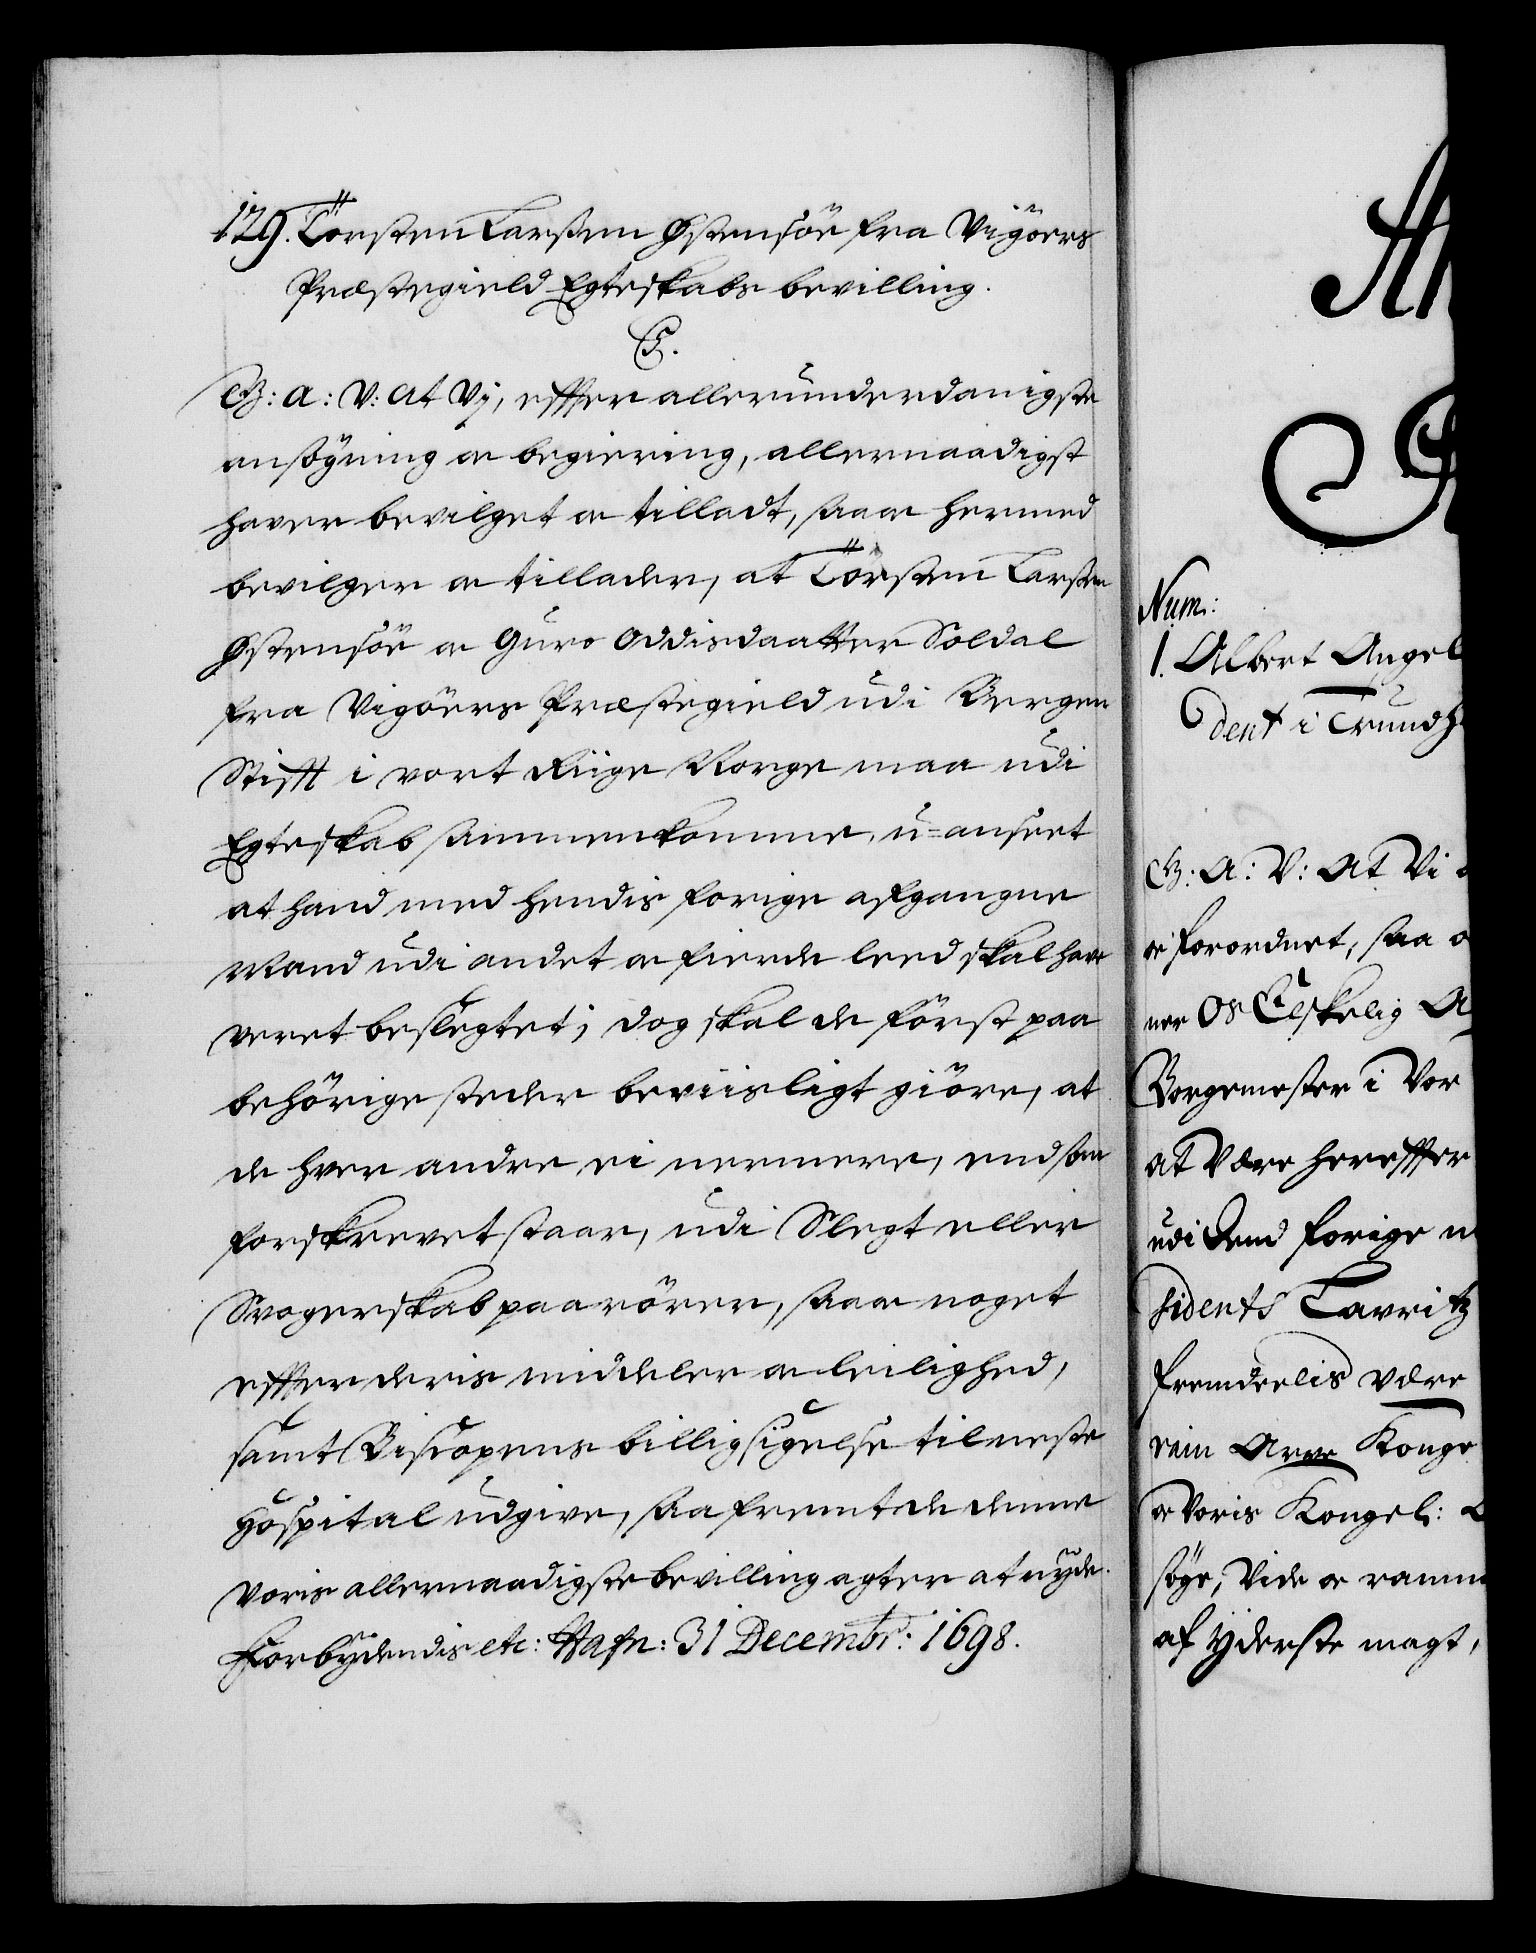 129. Törsten Larssen Østensöe fra Vigöers
Præstegield Egteskabs bevilling.
C5.
G: A: V: At Vj, effter allerunderdanigste
ansögning oc begiering, allernaadigst
hafver bevilget oc tilladt, saa oc hermed
bevilger oc tillader, at Törsten Larssen
Østensöe oc Guro Oddisdaatter Soldal
fra Vigöers Præstegield udi Bergen
Stifft i vort Riige Norge maa udi
Egteskab sammenkomme, u=anseet
at hand med hendis forige afgangne
Mand udi andet oc fierde leed skal have
veret beslegtet; dog skal de först paa
behörige steder beviisligt giöre, at
de hver andre ei nermere, end som
forskrevet staar, udi Slegt eller
Svogerskab paarörer, saa oc noget
effter deris middeler oc leilighed,
samt Biscopens billigsigelse til neste
Hospital udgive, saafremt de denne
voris allernaadigste bevilling agter at nyde.
Forbydendis etc: Hafn: 31 Decembr: 1698.
Num:
1. Albert Angel
dent i Trundh
G: A: V: At Vi
oc forordnet, saa o
ner Os Elskelig A
Borgemester i Vor
at Være hereffter
udi dend forige
sidents Lavritz
fremdeelis være
rain Arve Konge
oc Voris Kongel:
söge, Vide oc ramme
af yderste magt,